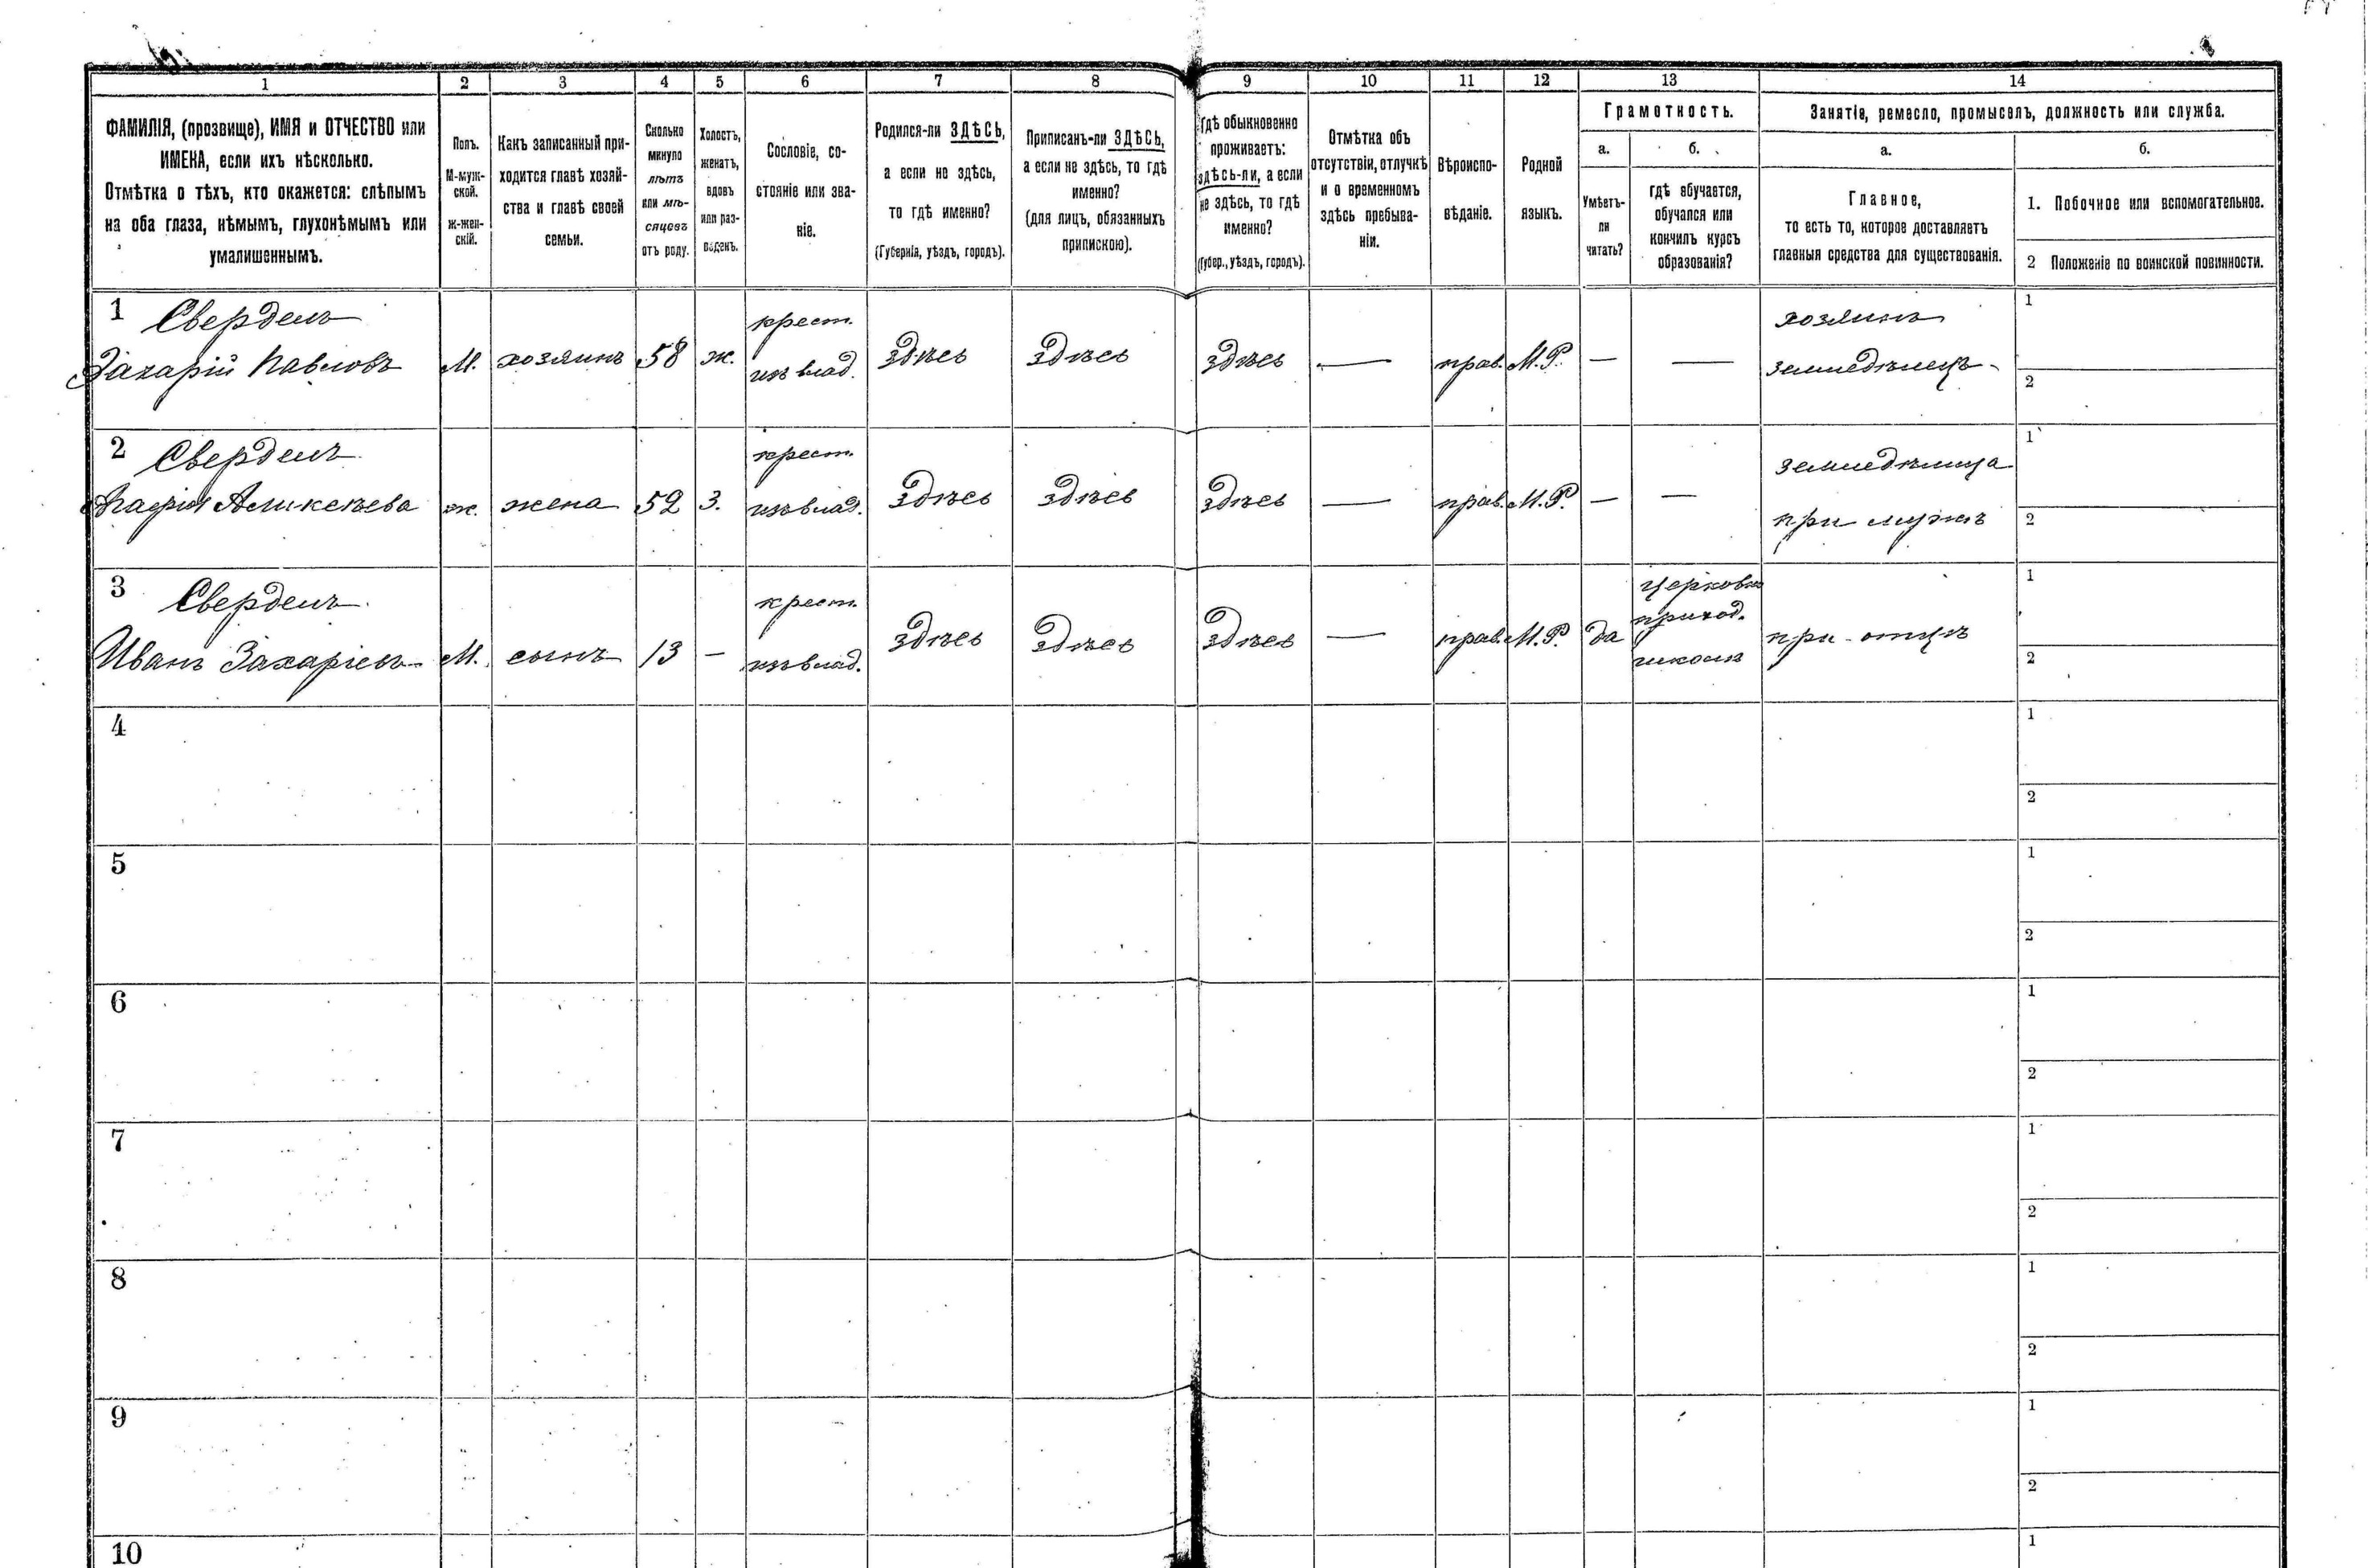 1 2 3 4 5 6 7 8 9 10 11 12 13 14
ФАМИЛІЯ, (прозвище), ИМЯ и ОТЧЕСТВО или
ИМЕНА, если ихъ нѣсколько.
Отмѣтка о тѣхъ, кто окажется: слѣпымъ
на оба глаза, нѣмымъ, глухонѣмымъ или
умалишеннымъ.
Полъ.
М-муж-
ской.
Ж-жен-
скій.
Какъ записанный при-
ходится главѣ хозяй-
ства и главѣ своей
семьи.
Сколько
минуло
лѣтъ
или мѣ-
сяцевъ
отъ роду.
Холостъ,
женатъ,
вдовъ
или раз-
веденъ.
Сословіе, со-
стояніе или зва-
ніе.
Родился-ли ЗДѢСЬ,
а если не здѣсь,
то гдѣ именно?
(Губернія, уѣздъ, городъ).
Приписанъ-ли ЗДѢСЬ,
а если не здѣсь, то гдѣ
именно?
(для лицъ, обязанныхъ
припискою).
Гдѣ обыкновенно
проживаетъ:
здѣсь-ли, а если
не здѣсь, то гдѣ
именно?
(Губер., уѣздъ, городъ).
Отмѣтка объ
отсутствіи, отлучкѣ
и о временномъ
здѣсь пребыва-
ніи.
Вѣроиспо-
вѣданіе.
Родной
языкъ.
Грамотность.
а.
Умѣетъ-
ли
читать?
б.
гдѣ обучается,
обучался или
кончилъ курсъ
образованія?
Занятіе, ремесло, промыселъ, должность или служба.
а.
Главное,
то есть то, которое доставляетъ
главныя средства для существованія.
б.
1. Побочное или вспомогательное.
2 Положеніе по воинской повинности.
1 Сверделъ
Захарій Павловъ
М.
хозяинъ
58
ж.
крест.
изъ влад.
здѣсь
здѣсь
здѣсь
—
прав.
М.Р.
—
—
хозяинъ
земледѣлецъ
1
2
2 Сверделъ
Агафія
ж.
жена
52
З.
крест.
изъ влад.
здѣсь
здѣсь
здѣсь
—
прав.
М.Р.
—
—
земледѣлица
при мужѣ
1
2
3 Сверделъ
Иванъ Захаріевъ
М.
сынъ
13
—
крест.
изъ влад.
здѣсь
здѣсь
здѣсь
—
прав.
М.Р.
да
церковно
приход.
школѣ
при отцѣ
1
2
4
1
2
5
1
2
6
1
2
7
1
2
8
1
2
9
1
2
10
1